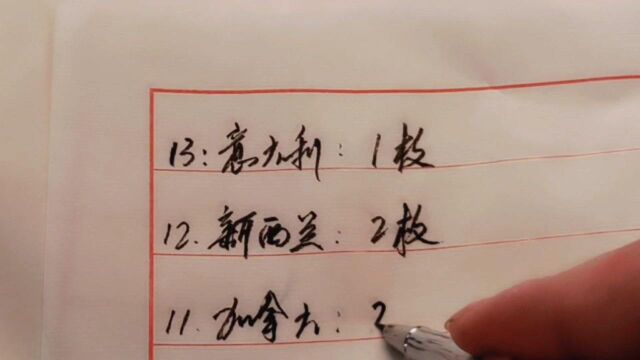 13:意大利:1枚
12.新西兰:2枚
11.加拿大:2